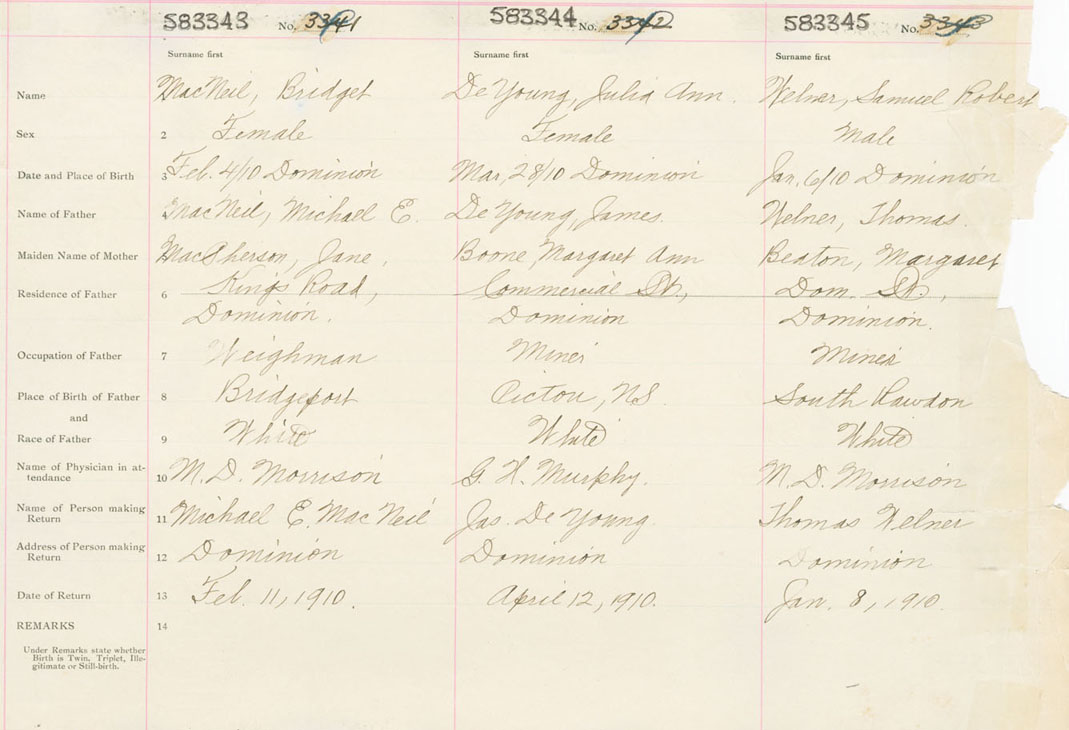 583343 No. 3341 583344 No. 3342 583345 No. 3343
Surname first Surname first Surname first
Name MacNeil, Bridget De Young, Julia Ann. Welner, Samuel Robert
Sex 2 Female Female Male
Date and Place of Birth 3 Feb. 4/10 Dominion Mar, 28/10 Dominion Jan, 6/10 Dominion
Name of Father 4 MacNeil, Michael E. De Young, James. Welner, Thomas.
Maiden Name of Mother MacPherson, Jane, Boone, Margaret Ann Beaton, Margaret
Residence of Father 6 Kings Road, Commercial St., Dom. St.,
Dominion. Dominion Dominion.
Occupation of Father 7 Weighman Miner Miner
Place of Birth of Father 8 Bridgeport Pictou, NS. South Rawdon
and
Race of Father 9 White White White
Name of Physician in at-
tendance 10 M. D. Morrison G. H. Murphy. M. D. Morrison
Name of Person making
Return 11 Michael E. MacNeil Jas. De Young. Thomas Welner
Address of Person making
Return 12 Dominion Dominion Dominion
Date of Return 13 Feb. 11, 1910. April 12, 1910. Jan. 8, 1910.
REMARKS 14
Under Remarks state whether
Birth is Twin, Triplet, Ille-
gitimate or Still-birth.